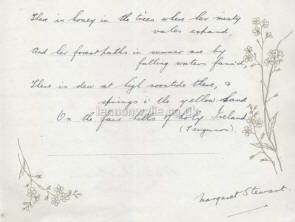 There is honey in the trees where her misty
vales expand,
And her forest paths in summer are by
falling waters fanned,
There is dew at high noontide there, &
springs i' the yellow sand
On the fair hills of holy Ireland
(Ferguson).
Margaret Stewart.